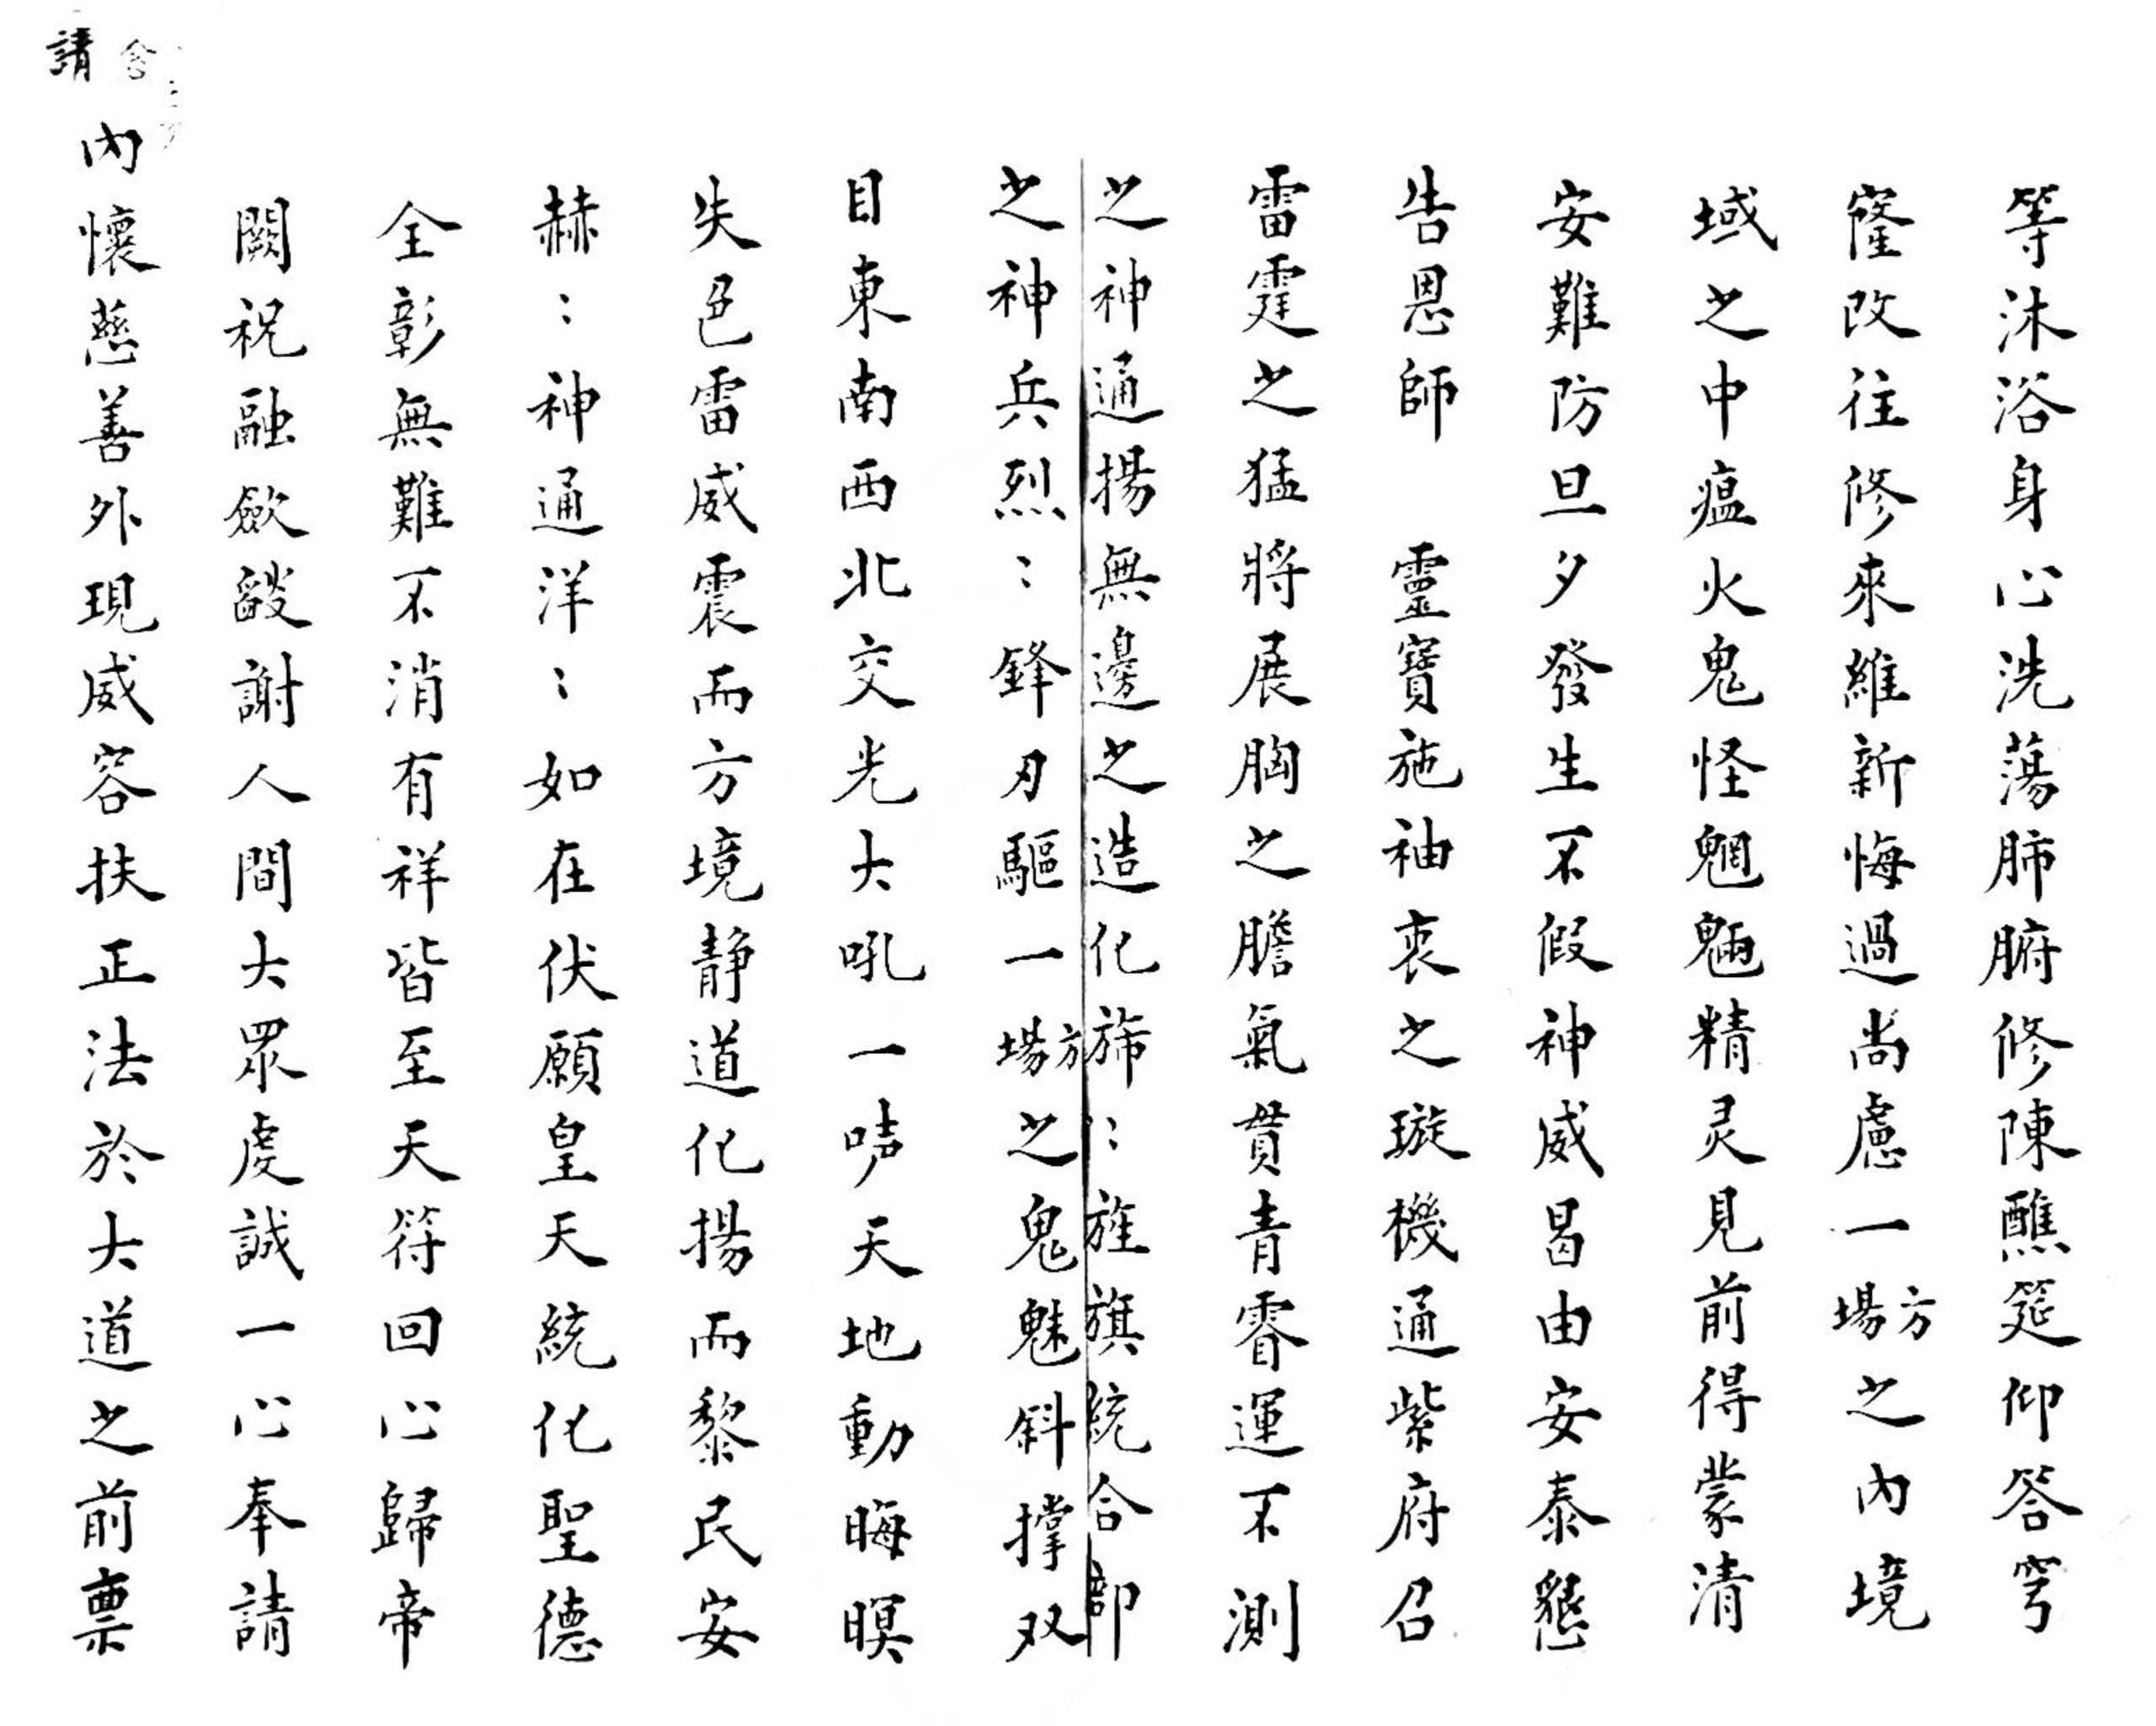 等沐浴身心洗蕩肺腑修陳醮筵仰答穹
窿改往修來維新悔過尚慮一方場之內境
域之中瘟火鬼怪魍魎精灵見前得蒙清
安難防旦夕發生不假神威曷由安泰懇
告恩師　靈寶施袖衷之璇機通紫府召
雷霆之猛將展胸之膽氣貫青霄運不測
之神通揚無邊之造化斾〻旌旗統合部
之神兵烈〻鋒刃驅一方場之鬼魅斜撐双
目東南西北交光大吼一吽天地動晦暝
失色雷威震而方境静道化揚而黎民安
赫〻神通洋〻如在伏願皇天統化聖德
全彰無難不消有祥皆至天符回心歸帝
闕祝融歛燄謝人間大眾虔誠一心奉請
內懷慈善外現威容扶正法於大道之前票
請